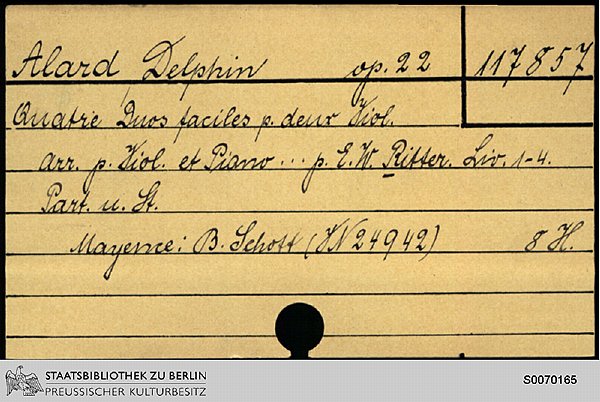 Alard, Delphin op. 22 117857
Quatre Duos faciles p. deux Viol.
arr. p. Viol. et Piano ... p. E. W. Ritter. Liv. 1-4.
Part. u. St.
Mayence: B. Schott (VN 24942) 8 H.
STAATSBIBLIOTHEK ZU BERLIN
PREUSSISCHER KULTURBESITZ
S0070165